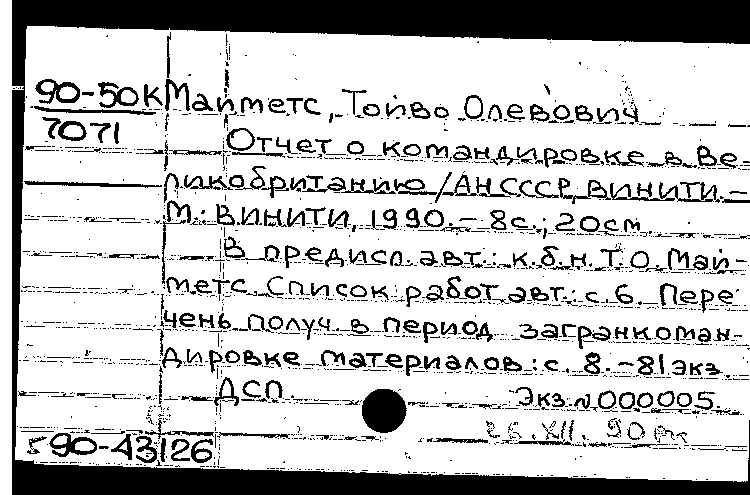 90-50К Майметс, Тойво Олевович
7071
Отчет о командировке в Ве-
ликобританию / АН СССР, ВИНИТИ. –
М.: ВИНИТИ, 1990. – 8 с.; 20 см
В предисл. авт.: к.б.н. Т.О. Май-
метс. Список работ авт.: с. 6. Пере
чень получ. в период загранкоман-
дировке материалов: с. 8. – 81 экз.
ДСП. Экз. N 000005.
26.XII.90
590-43126